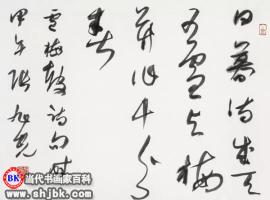 日暮诗成天
又雪与梅
并作十分
春
雪梅 诗句
甲午张旭光
BK 当代书画家百科
www.shjbk.com